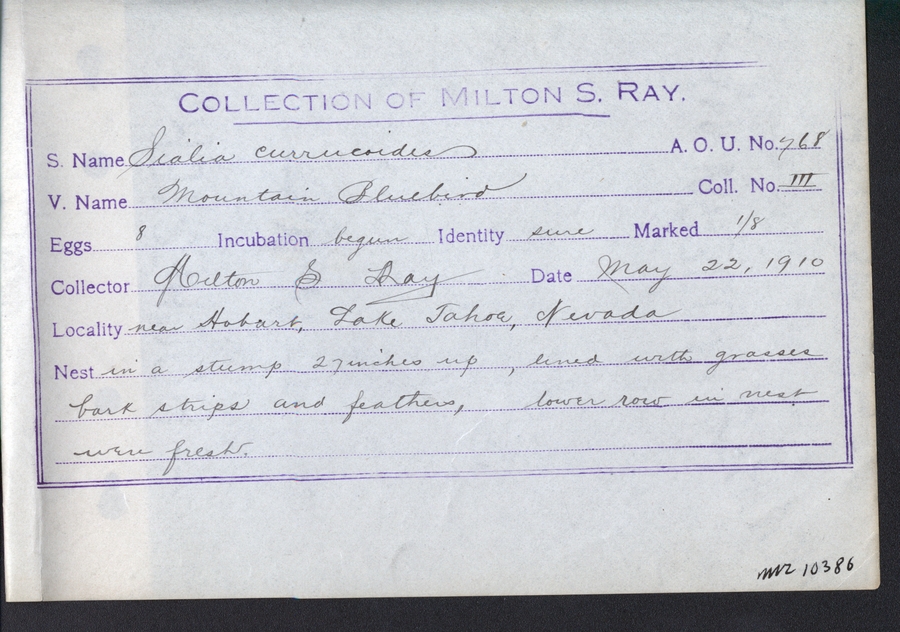 COLLECTION OF MILTON S. RAY.
S. Name Sialia currucoides A. O. U. No. 768
V. Name Mountain Bluebird Coll. No. III
Eggs 8 Incubation begun Identity sure Marked 1/8
Collector Milton S Ray Date May 22, 1910
Locality near Hobart, Lake Tahoe, Nevada
Nest in a stump 27 inches up, lined with grasses
bark strips and feathers, lower row in nest
were fresh.
MVZ 10386